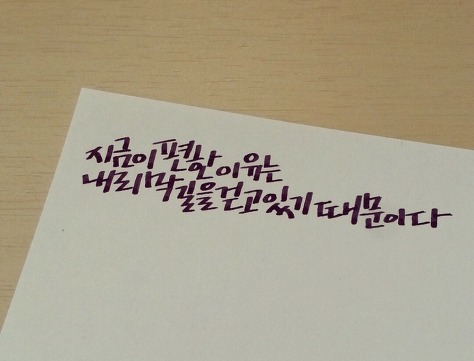 지금이 편한 이유는
내리막길을 걷고 있기 때문이다